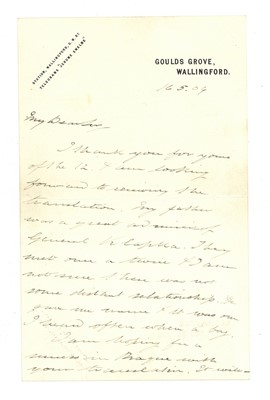 STATION, WALLINGFORD, G.W.RY
TELEGRAMS
GOULDS GROVE,
WALLINGFORD.
16.5.09
My Dear Sir,
I thank you for yours
of the 12. I am looking
forward to receiving the
translation. My father
was a great admirer of
General Klapka. They
met once or twice & I am
not sure there was not
some distant relationship.
name & it was one
I heard often when a boy.
I am hoping for a
success in Prague with
your